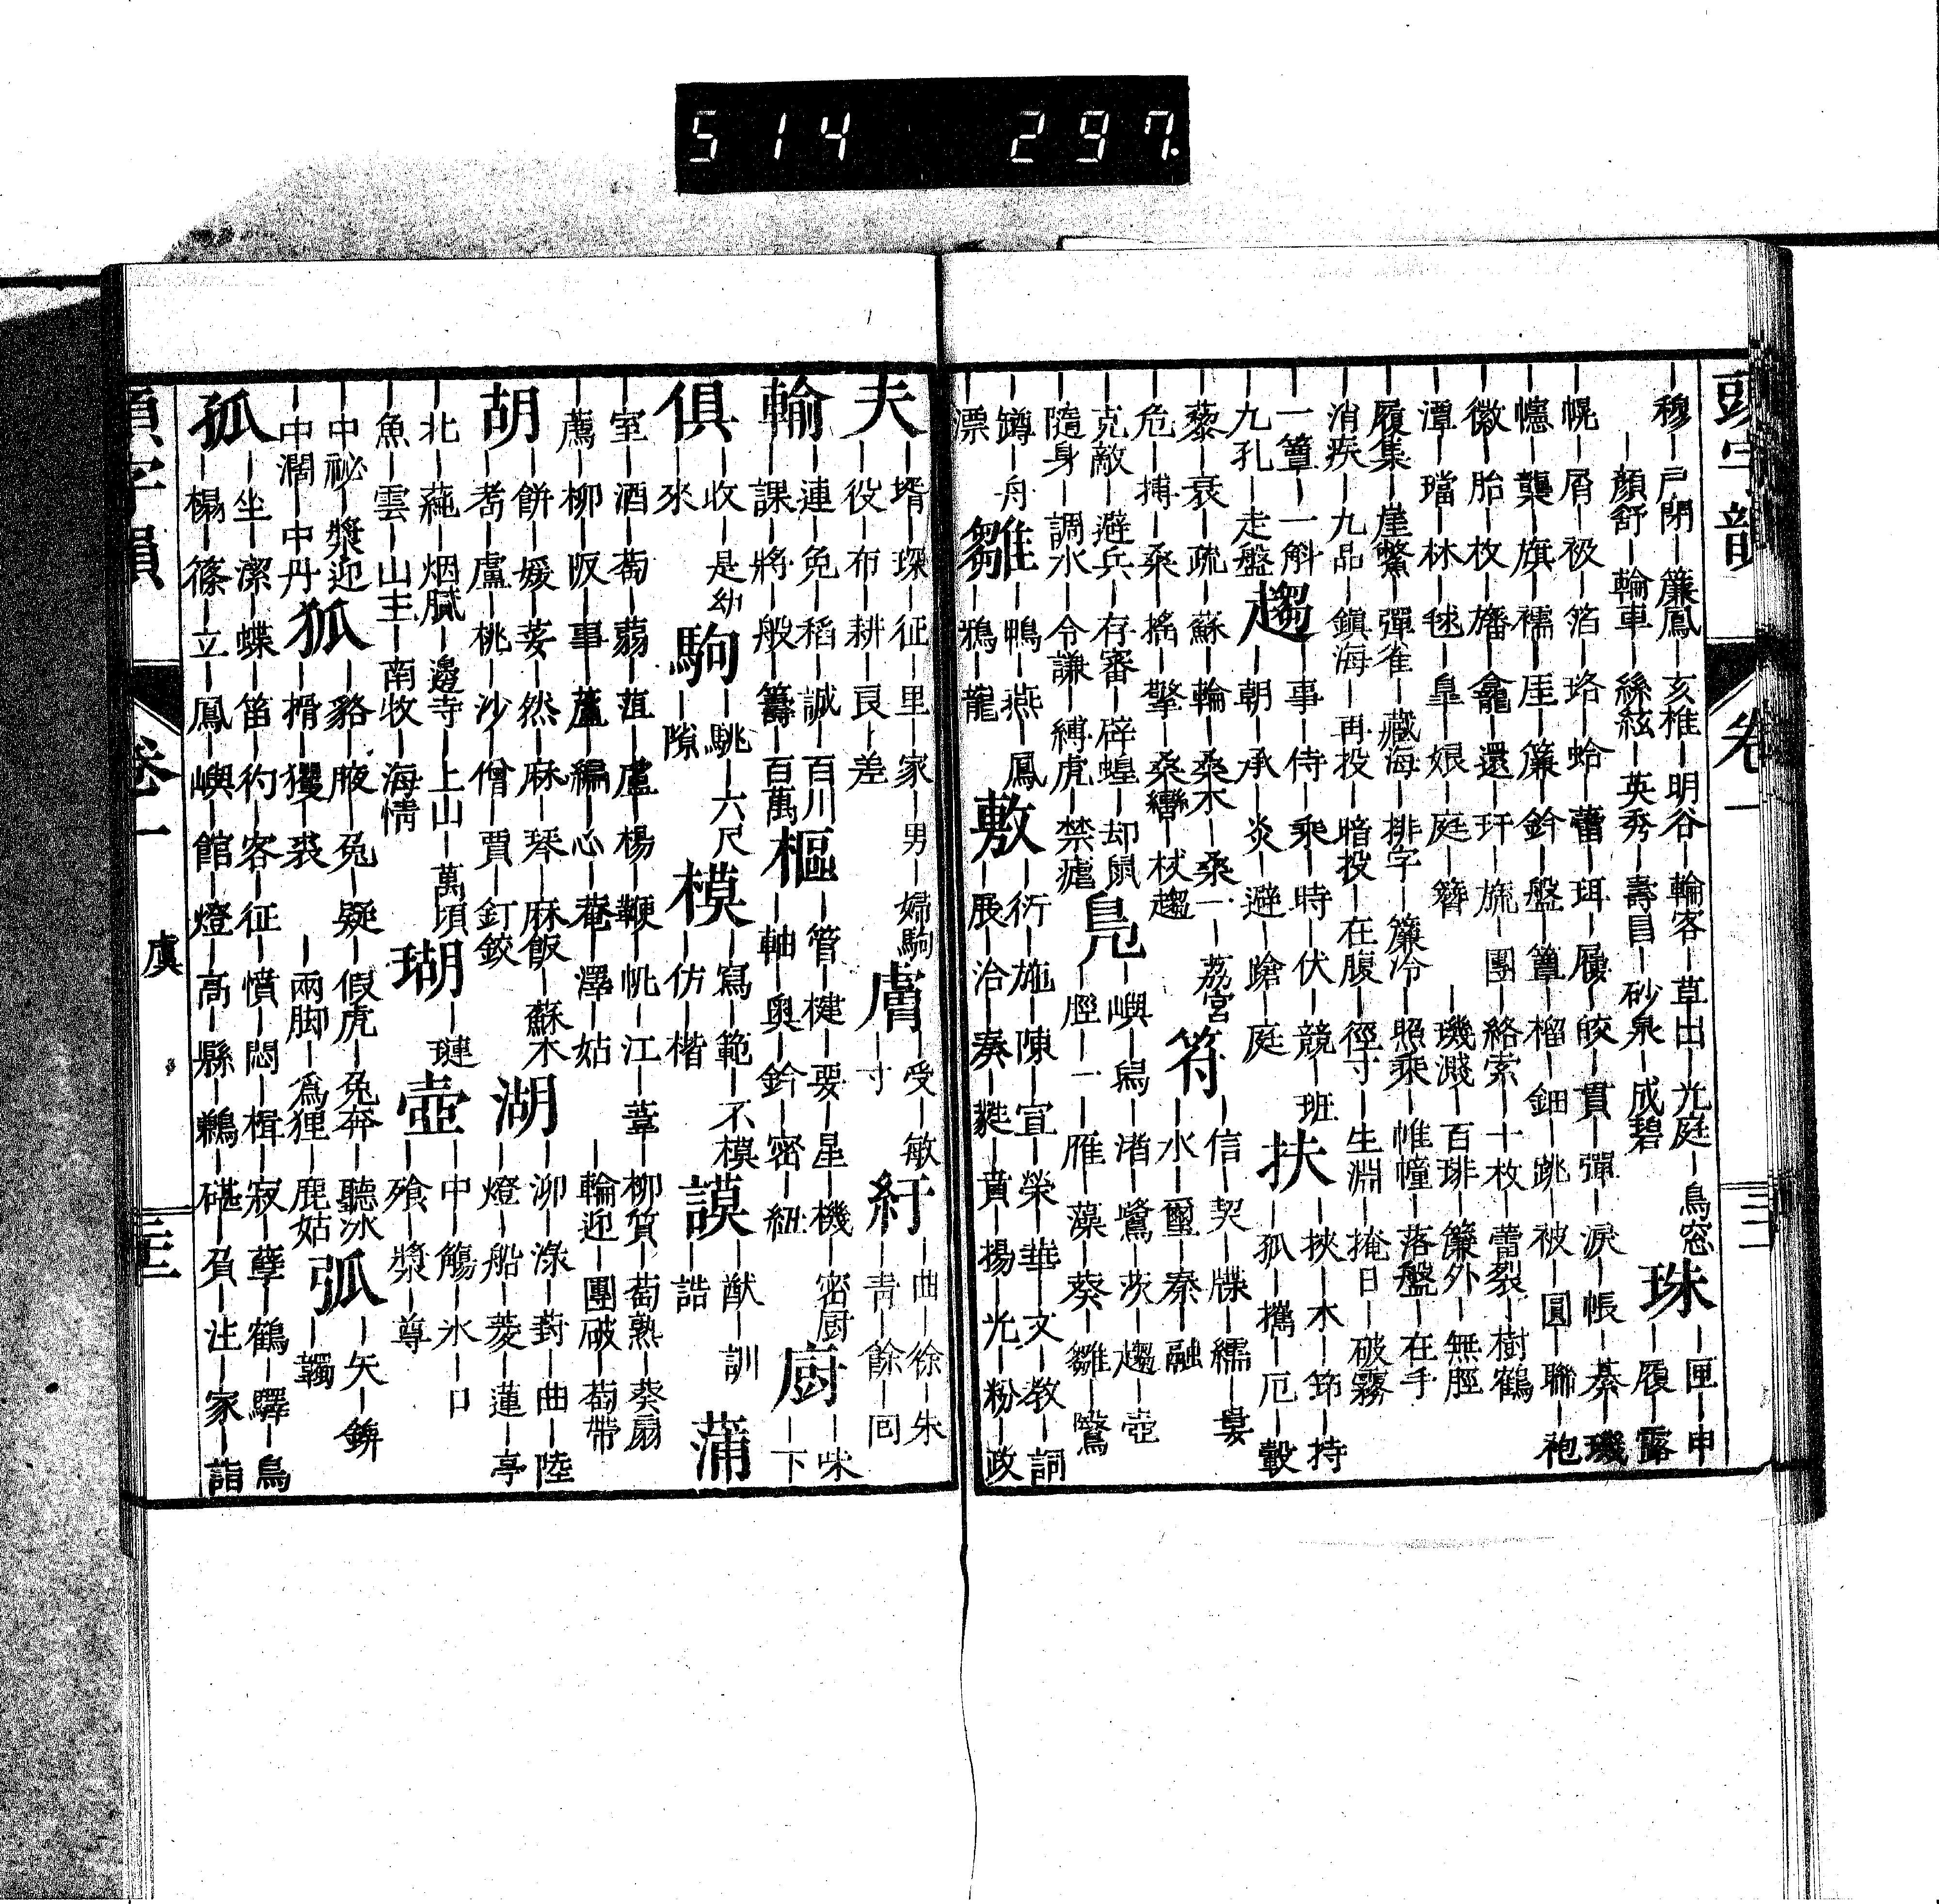 514 297.
頭字韻 卷一
穆｜戶閉｜簾鳳｜亥推｜明谷｜輪客｜草出｜光庭｜鳥窓
｜顏舒｜輪車｜絲絃｜英秀｜壽昌｜砂泉｜成碧
珠｜匣｜申
｜履｜露
幌｜屑｜衱｜箔｜珞｜蛤｜蕾｜珥｜履｜皎｜貫｜彈｜淚｜帳｜綦｜璣
幰｜襲｜旗｜襦｜厓｜簾｜鈐｜盤｜簟｜榴｜鈿｜跳｜被｜圓｜聯｜袍
徽｜胎｜枚｜旛｜龕｜還｜玕｜旒｜團｜絡索｜十枚｜蕾裂｜樹鶴
潭｜璫｜林｜毬｜皇｜娘｜庭｜簪｜璣濺｜百琲｜簾外｜無脛
履集｜崖鱉｜彈雀｜藏海｜排字｜簾冷｜照乘｜帷幢｜落盤｜在手
消疾｜九品｜鎮海｜再投｜暗投｜在腹｜徑寸｜生淵｜掩日｜破霧
一簟｜一斛
九孔｜走盤
趨｜事｜侍｜乘｜時｜伏｜競｜班
｜朝｜承｜炎｜避｜蹌｜庭
扶｜挾｜木｜笻｜持
｜狐｜攜｜厄｜轂
藜｜衰｜疏｜蘇｜輪｜桑木｜桑一｜荔宮
危｜搏｜桑｜搖｜擎｜桑纞｜杖趨
符｜信｜契｜牒｜繻｜晏
｜水｜璽｜秦｜融
克敵｜避兵｜存審｜辟蝗｜却鼠
隨身｜調水｜令謙｜縛虎｜禁瘧
鳧｜嶼｜舄｜渚｜鷺｜茨｜趨｜壺
｜脛｜一｜雁｜藻｜葵｜雛｜鷖
蹲｜舟
漂
雛｜鴨｜燕｜鳳
｜鴉｜龍
敷｜衍｜施｜陳｜宣｜榮｜華｜文｜教｜詞
｜展｜洽｜奏｜蕤｜賁｜揚｜光｜粉｜政
夫｜壻｜琛｜征｜里｜家｜男｜婦駒
｜役｜布｜耕｜良｜差
膚｜受｜敏
｜寸
紆｜曲｜徐｜朱
｜青｜餘｜回
輸｜連｜免｜稻｜誠｜百川
｜課｜將｜般｜籌｜百萬
樞｜管｜楗｜要｜星｜機｜密厨
｜軸｜奥｜鈐｜密｜紐
厨｜味
｜下
俱｜收｜是幼
｜來
駒｜駣｜六尺
｜隙
模｜寫｜範｜不模
｜仿｜楷
謨｜猷｜訓
｜誥
蒲
室｜酒｜萄｜蒻｜菹｜盧｜楊｜鞭｜帆｜江｜葦｜柳質｜萄熟｜葵扇
薦｜柳｜阪｜事｜蘆｜編｜心｜菴｜澤｜姑｜輪迎｜團破｜萄帶
胡｜餅｜媛｜荽｜然｜麻｜琴｜麻飯｜蘇木
｜耇｜盧｜桃｜沙｜僧｜賈｜釘鉸
湖｜泖｜淥｜葑｜曲｜陸
｜燈｜船｜菱｜蓮｜亭
北｜蓴｜烟膩｜邊寺｜上山｜萬頃
魚｜雲｜山主｜南牧｜海情
瑚｜璉
壺｜中｜觴｜氷｜口
｜飧｜漿｜尊
中祕｜漿迎
中濶｜中丹
狐｜貉｜腋｜兔｜疑｜假虎｜兔奔｜聽冰
｜搰｜玃｜裘｜兩脚｜爲狸｜鹿姑
弧｜矢｜鉼
｜韣
孤｜坐｜潔｜蝶｜笛｜礿｜客｜征｜憤｜悶｜楫｜寂｜孽｜鶴｜驛｜鳥
｜榻｜篠｜立｜鳳｜嶼｜館｜燈｜高｜縣｜鵜｜碪｜負｜注｜家｜詣
卷一 虞